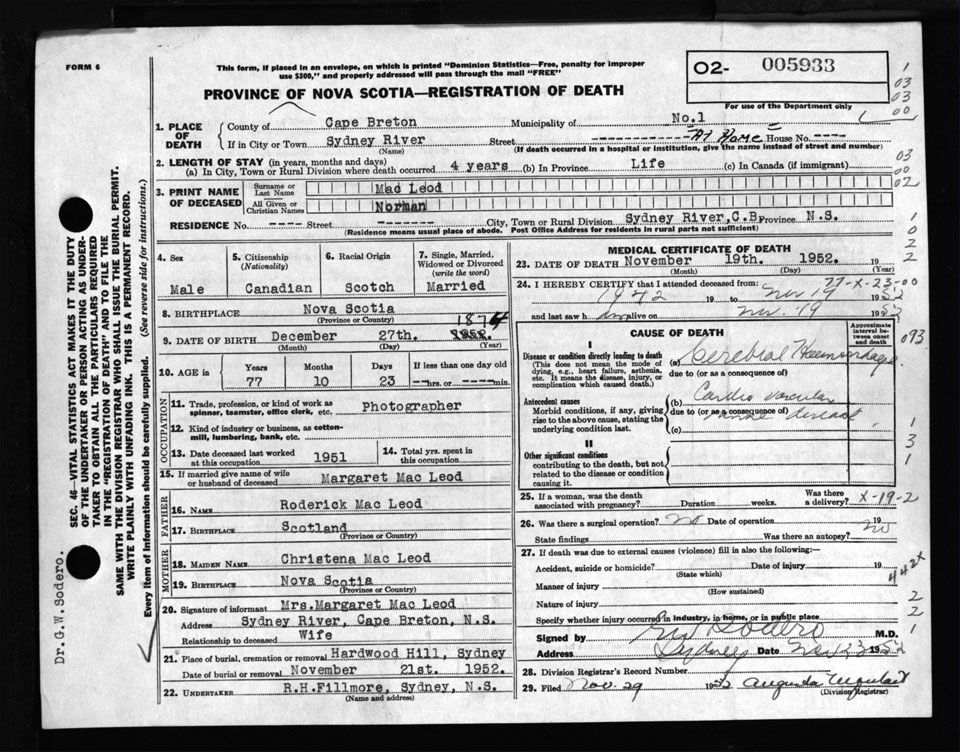 FORM 6
This form, if placed in an envelope, on which is printed "Dominion Statistics—Free, penalty for improper
use $300," and properly addressed will pass through the mail "FREE"
PROVINCE OF NOVA SCOTIA—REGISTRATION OF DEATH
O2- 005933
For use of the Department only
1. PLACE OF DEATH
County of Cape Breton Municipality of No.1
If in City or Town Sydney River Street At Home House No.
(Name) (If death occurred in a hospital or institution, give the name instead of street and number)
2. LENGTH OF STAY (in years, months and days)
(a) In City, Town or Rural Division where death occurred 4 years (b) In Province Life (c) In Canada (if immigrant)
3. PRINT NAME OF DECEASED
Surname or Last Name Mac Leod
All Given or Christian Names Norman
RESIDENCE No. ---- Street ------- City, Town or Rural Division Sydney River,C.B. Province N.S.
(Residence means usual place of abode. Post Office Address for residents in rural parts not sufficient)
4. Sex
Male
5. Citizenship (Nationality)
Canadian
6. Racial Origin
Scotch
7. Single, Married, Widowed or Divorced (write the word)
Married
8. BIRTHPLACE Nova Scotia
(Province or Country)
9. DATE OF BIRTH December 27th. 1874
(Month) (Day) (Year)
10. AGE in Years Months Days If less than one day old
77 10 23 --hrs. or ----min.
OCCUPATION
11. Trade, profession, or kind of work as spinner, teamster, office clerk, etc. Photographer
12. Kind of industry or business, as cotton-mill, lumbering, bank, etc.
13. Date deceased last worked at this occupation 1951
14. Total yrs. spent in this occupation
15. If married give name of wife or husband of deceased Margaret Mac Leod
FATHER
16. NAME Roderick Mac Leod
17. BIRTHPLACE Scotland
(Province or Country)
MOTHER
18. MAIDEN NAME Christena Mac Leod
19. BIRTHPLACE Nova Scotia
(Province or Country)
20. Signature of informant Mrs.Margaret Mac Leod
Address Sydney River, Cape Breton, N.S.
Relationship to deceased Wife
21. Place of burial, cremation or removal Hardwood Hill, Sydney
Date of burial or removal November 21st. 1952.
22. UNDERTAKER R.H.Fillmore, Sydney, N.S.
(Name and address)
MEDICAL CERTIFICATE OF DEATH
23. DATE OF DEATH November 19th. 1952.
(Month) (Day) (Year)
77-X-23-00
24. I HEREBY CERTIFY that I attended deceased from:
1942 19 to Nov 19 1952
and last saw h alive on Nov. 19 1952
CAUSE OF DEATH
Approximate interval between onset and death
093
I
Disease or condition directly leading to death
(This does not mean the mode of dying, e.g., heart failure, asthenia, etc. It means the disease, injury, or complication which caused death.)
(a) Cerebral Haemorrhage
due to (or as a consequence of)
Antecedent causes
Morbid conditions, if any, giving rise to the above cause, stating the underlying condition last.
(b) Cardio vascular
due to (or as a consequence of) renal disease
(c)
II
Other significant conditions
contributing to the death, but not related to the disease or condition causing it.
25. If a woman, was the death associated with pregnancy? Duration weeks. Was there a delivery? X-19-2
26. Was there a surgical operation? No Date of operation 19
State findings Was there an autopsy? no
27. If death was due to external causes (violence) fill in also the following:—
Accident, suicide or homicide? Date of injury 19
(State which)
Manner of injury
(How sustained)
Nature of injury
Specify whether injury occurred in industry, in home, or in public place
Signed by Sodero M.D.
Address Sydney Date Nov 23 1952
28. Division Registrar's Record Number
29. Filed Nov. 29 1952 Augusta
(Division Registrar)
SEC. 46 — VITAL STATISTICS ACT MAKES IT THE DUTY
OF THE UNDERTAKER OR PERSON ACTING AS UNDER-
TAKER TO OBTAIN ALL THE PARTICULARS REQUIRED
IN THE "REGISTRATION OF DEATH" AND TO FILE THE
SAME WITH THE DIVISION REGISTRAR WHO SHALL ISSUE THE BURIAL PERMIT.
WRITE PLAINLY WITH UNFADING INK. THIS IS A PERMANENT RECORD.
Every item of information should be carefully supplied. (See reverse side for instructions.)
Dr.G.W.Sodero.